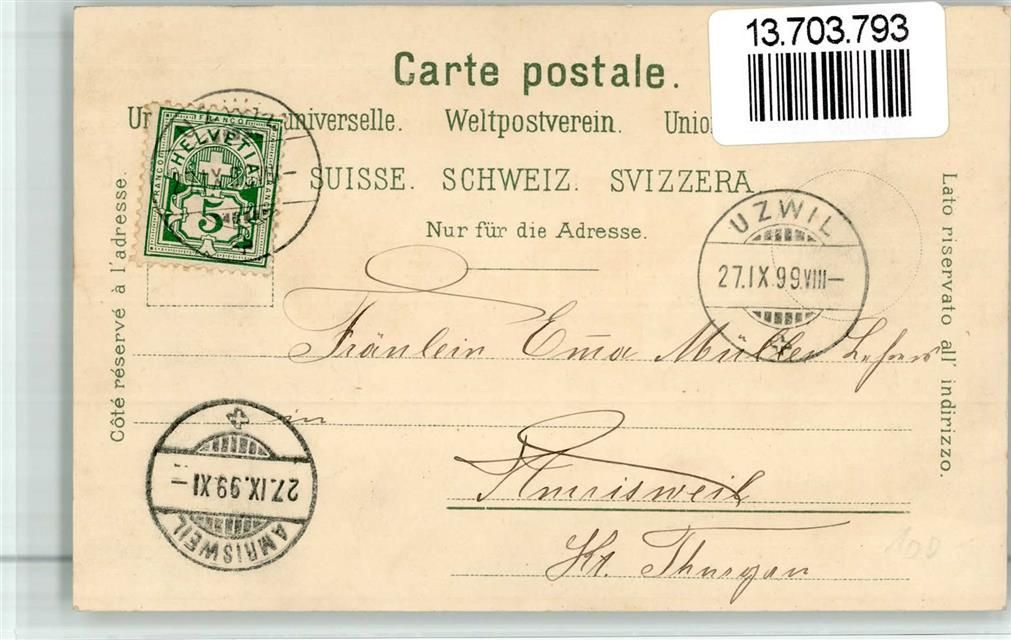 13.703.793
Carte postale.
universelle. Weltpostverein. Unio
SUISSE. SCHWEIZ. SVIZZERA.
Nur für die Adresse.
Côté réservé à l'adresse.
Lato riservato all' indirizzo.
FRANCO
FRANCO
HELVETIA
5
UZWIL
27.IX.99.VIII—
Fräulein Em̅a Müller
in
Amrisweil
Kt. Thurgau
27.IX.99.XI—
AMRISWEIL
100